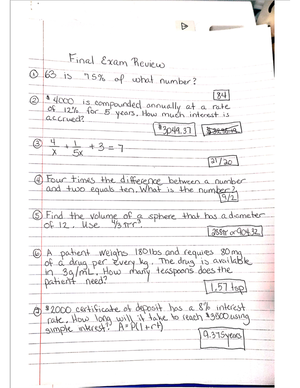 Final Exam Review
① 63 is 75% of what number?
84
② $4000 is compounded annually at a rate
of 12% for 5 years. How much interest is
accrued?
$3049.37
③ 4/x + 1/5x + 3 = 7
21/20
④ Four times the difference between a number
and two equals ten. What is the number?
9/2
⑤ Find the volume of a sphere that has a diameter
of 12. Use 4/3πr³
288π or 904.32
⑥ A patient weighs 180 lbs and requires 80 mg
of a drug per every kg. The drug is available
in 3g/mL. How many teaspoons does the
patient need?
1.57 tsp
⑦ $2000 certificate of deposit has a 8% interest
rate. How long will it take to reach $3500 using
simple interest? A=P(1+rt)
9.375 years